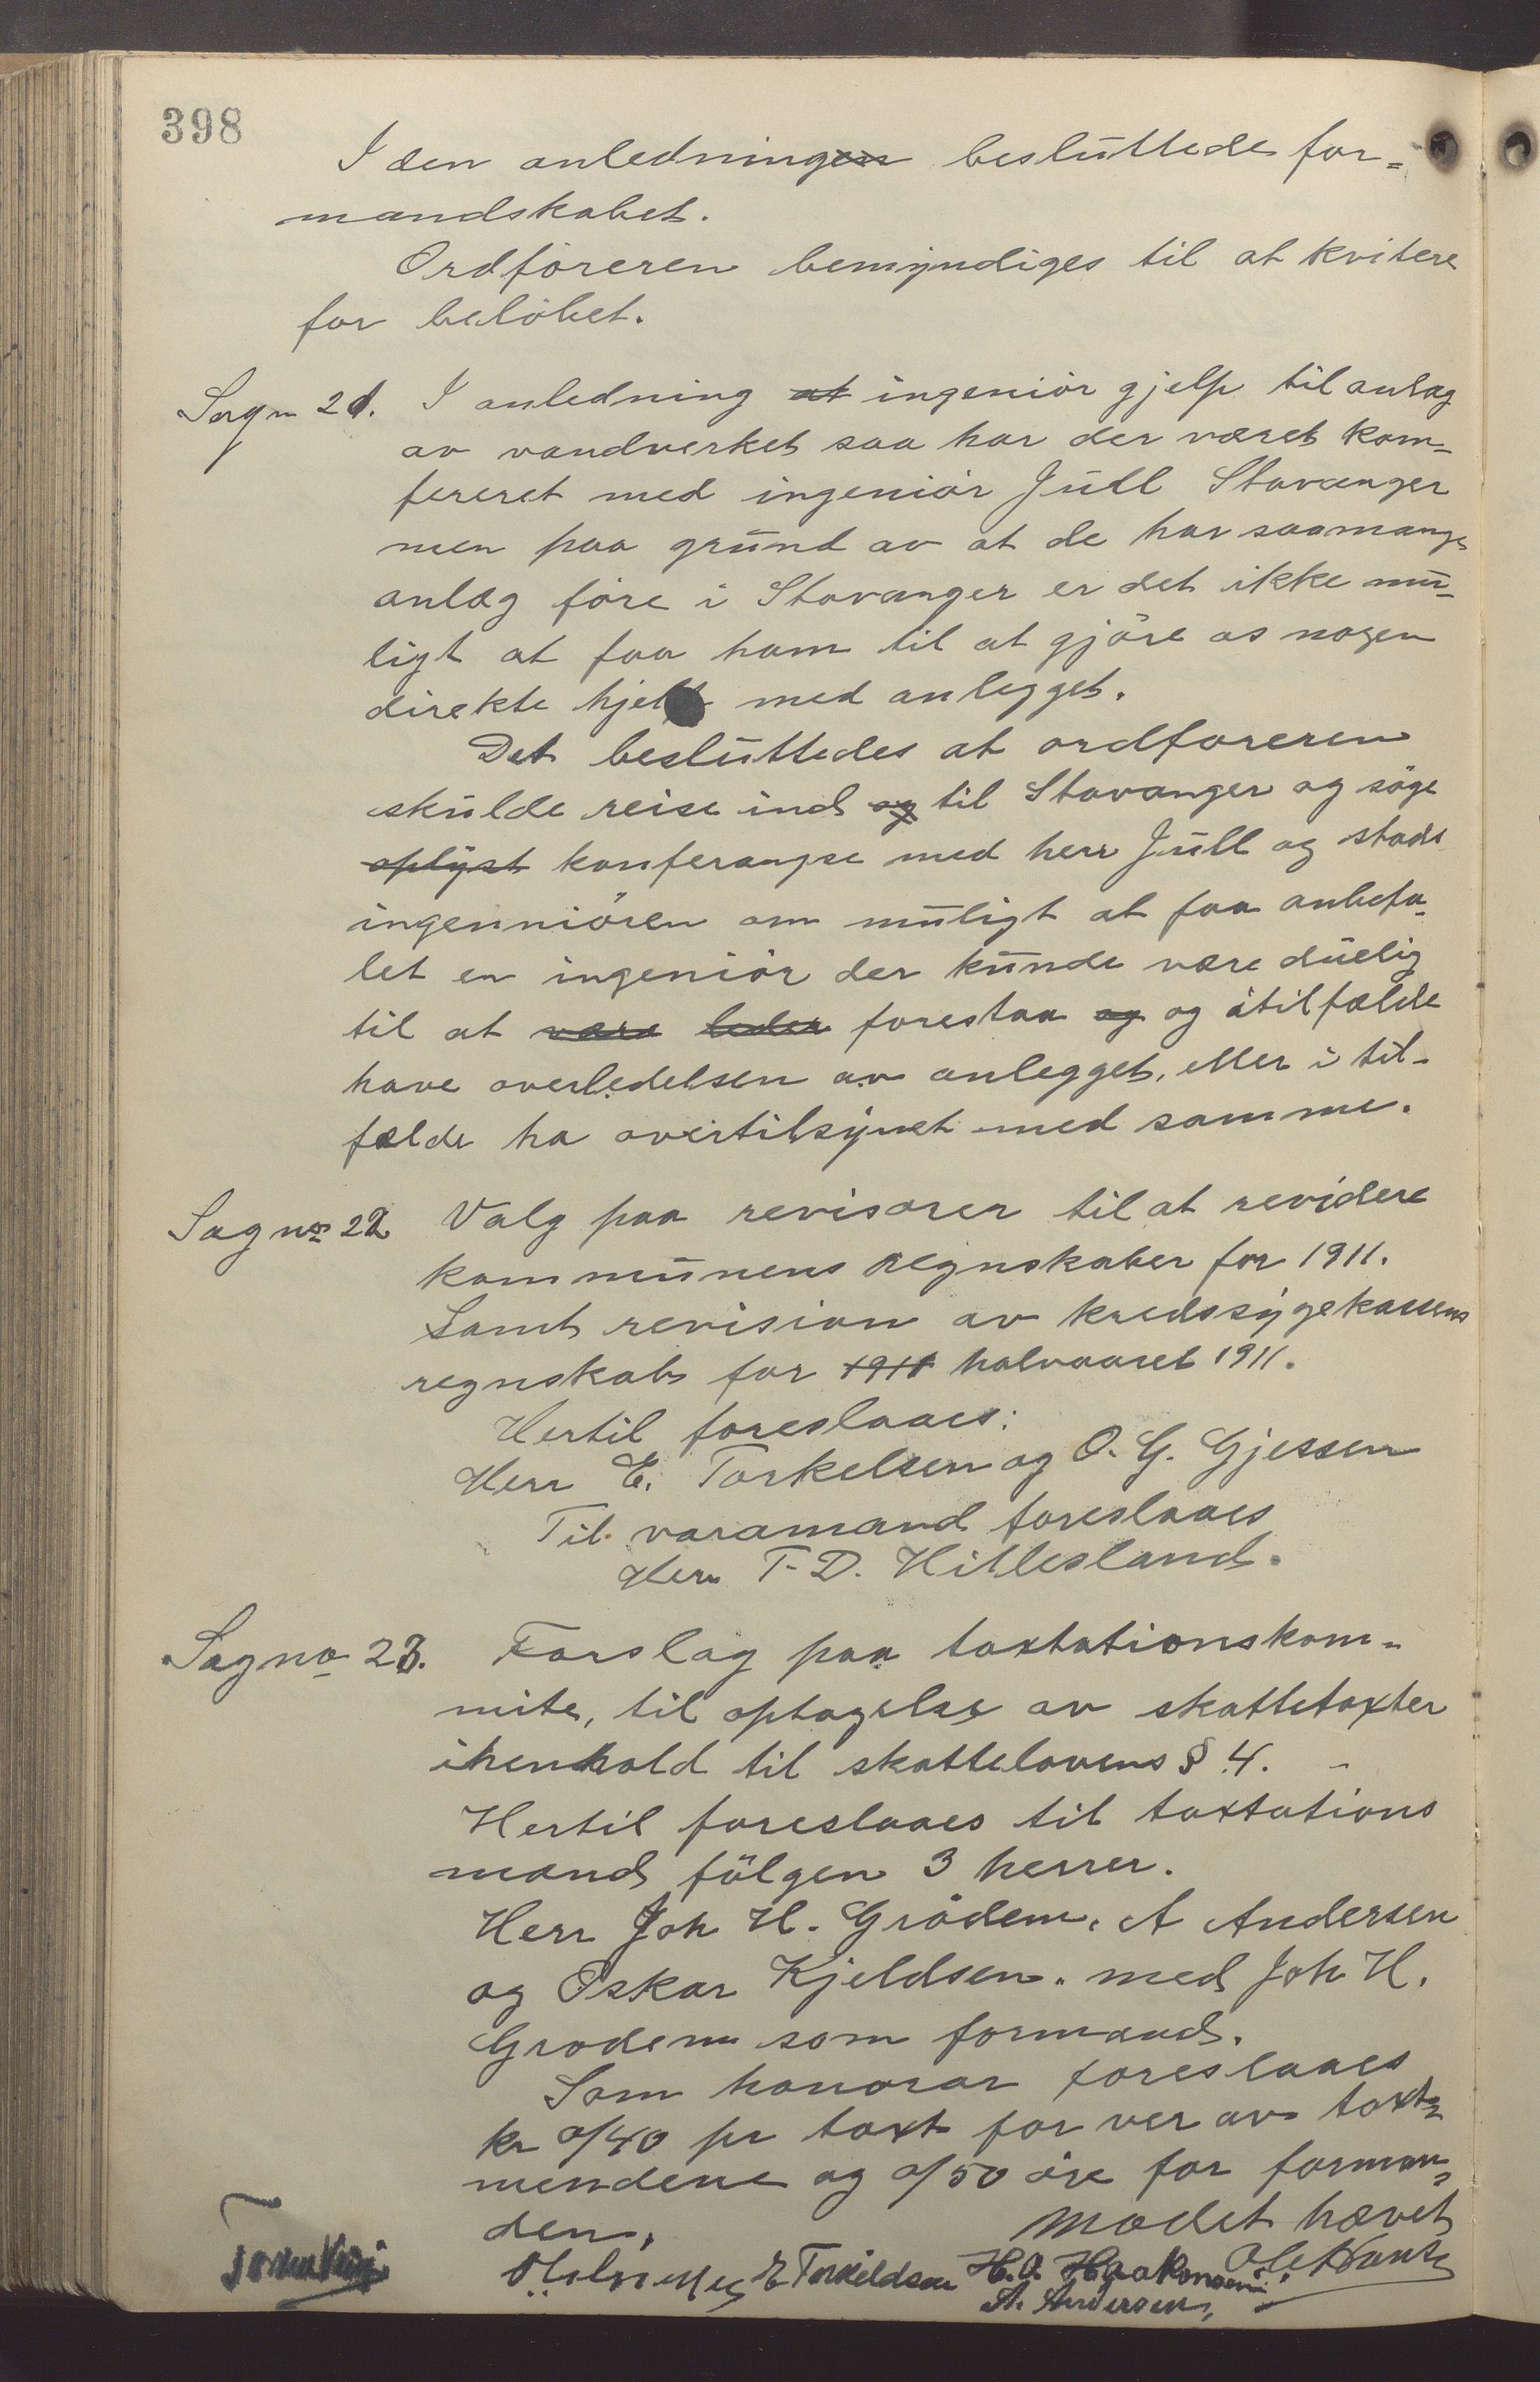 398
I den anledningen besluttede for=
mandskabet.
Ordföreren bemyndiges til at kvitere
for belöbet.
Sag n 21. I anledning at ingeniör gjelp til anlæg
av vandverket saa har der været kom-
fereret med ingeniör Juell Stavanger
men paa grund av at de har saamange
anlæg före i Stavanger er det ikke mu-
ligt at faa ham til at gjöre os nogen
direkte hjelp med anlegget.
Det besluttedes at ordföreren
skulde reise ind og til Stavanger og söge
oplyst konferangse med herr Juell og stads
ingenniören om muligt at faa anbefa-
let en ingeniör der kunde være duelig
til at være leder forestaa og og itilfælde
have overledelsen av anlegget, eller i til-
fælde ha overtilsynet med samme.
Sag no 22 Valg paa revisorer til at revidere
kommunens regnskaber for 1911.
Samt revision av kredssygekassens
regnskab for 1911 halvaaret 1911.
Hertil foreslaaes:
Herr E. Torkelsen og O. G. Gjessen
Til varamand foreslaaes
Herr T. D. Hillesland.
Sag no 23. Forslag paa taxtationskom-
mite, til optagelse av skattetaxter
ihenhold til skattelovens § 4.
Hertil foreslaaes til taxtations
mænd fölgen 3 herrer.
Herr Joh H. Grödem, A Andersen
og Oskar Kjeldsen. med Joh H.
Grodem som formand.
Som honorar foreslaaes
kr 0/40 pr taxt for ver av taxt=
mendene og 0/50 öre for forman=
den.
Mödet hævet
E Torkeldsen H. O. Haakonsen
A. Andersen